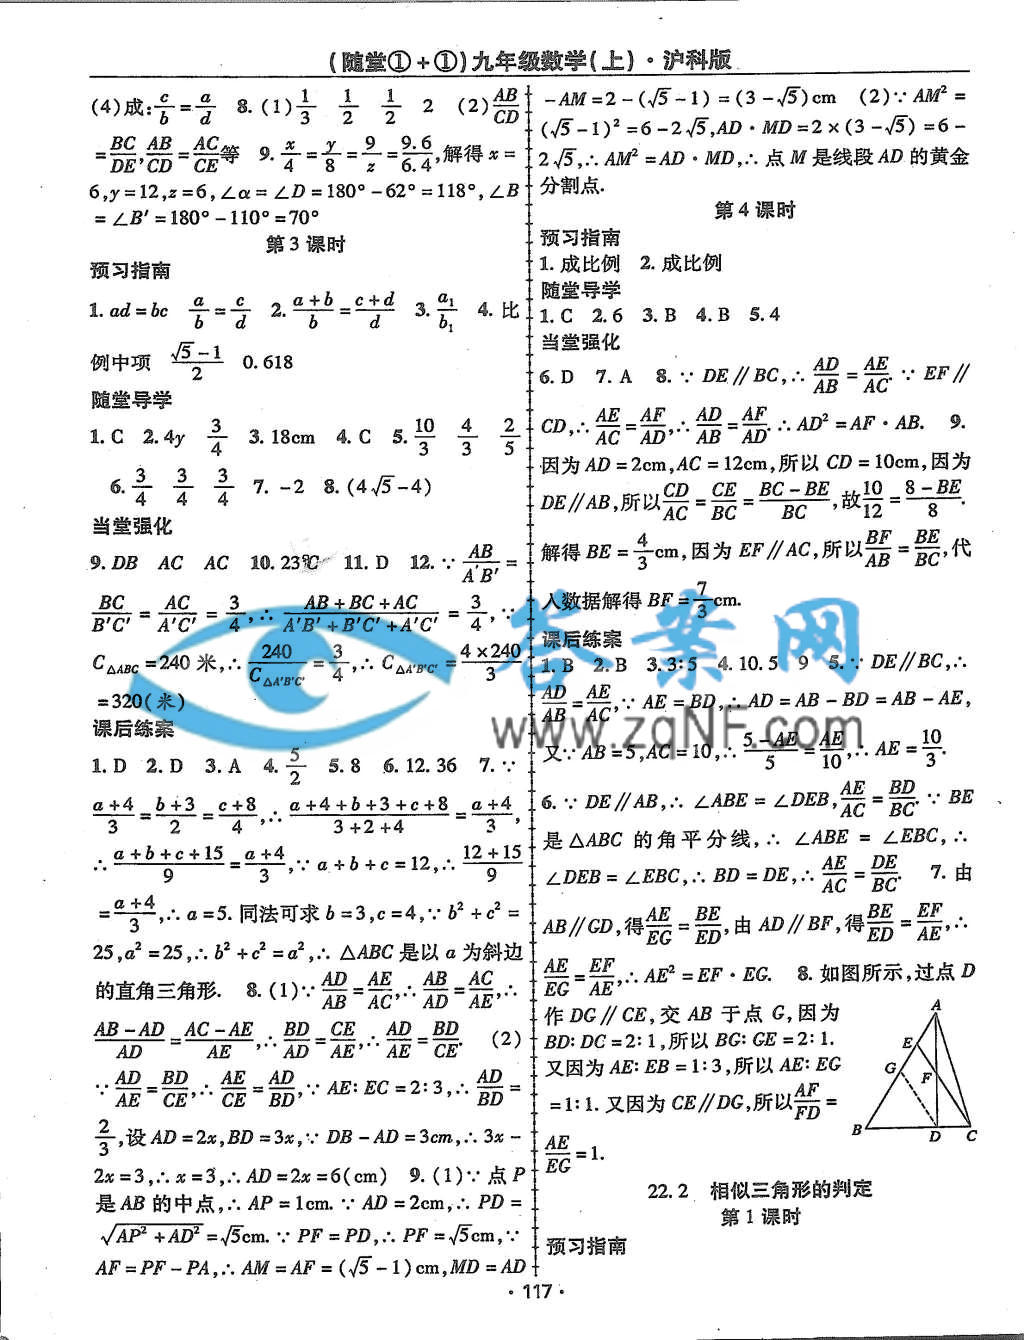 (随堂①+①)九年级数学(上)·沪科版
(4)成:c/b=a/d 8.(1)1/3 1/2 1/2 2 (2)AB/CD
=BC/DE,AB/CD=AC/CE等 9.x/4=y/8=9/z=9.6/6.4,解得x=
6,y=12,z=6,∠α=∠D=180°-62°=118°,∠B
=∠B′=180°-110°=70°
第3课时
预习指南
1.ad=bc a/b=c/d 2.(a+b)/b=(c+d)/d 3.a₁/b₁ 4.比
例中项 (√5-1)/2 0.618
随堂导学
1.C 2.4y 3/4 3.18cm 4.C 5.10/3 4/3 2/5
6.3/4 3/4 3/4 7.-2 8.(4√5-4)
当堂强化
9.DB AC AC 10.23℃ 11.D 12.∵AB/A′B′=
BC/B′C′=AC/A′C′=3/4,∴(AB+BC+AC)/(A′B′+B′C′+A′C′)=3/4,∵
C△ABC=240米,∴240/C△A′B′C′=3/4,∴C△A′B′C′=(4×240)/3
=320(米)
课后练案
1.D 2.D 3.A 4.5/2 5.8 6.12.36 7.∵
(a+4)/3=(b+3)/2=(c+8)/4,∴(a+4+b+3+c+8)/(3+2+4)=(a+4)/3,
∴(a+b+c+15)/9=(a+4)/3,∵a+b+c=12,∴(12+15)/9
=(a+4)/3,∴a=5.同法可求b=3,c=4,∵b²+c²=
25,a²=25,∴b²+c²=a²,∴△ABC是以a为斜边
的直角三角形. 8.(1)∵AD/AB=AE/AC,∴AB/AD=AC/AE,∴
(AB-AD)/AD=(AC-AE)/AE,∴BD/AD=CE/AE,∴AD/AE=BD/CE. (2)
∵AD/AE=BD/CE,∴AE/CE=AD/BD,∵AE:EC=2:3,∴AD/BD=
2/3,设AD=2x,BD=3x,∵DB-AD=3cm,∴3x-
2x=3,∴x=3,∴AD=2x=6(cm) 9.(1)∵点P
是AB的中点,∴AP=1cm.∵AD=2cm,∴PD=
√(AP²+AD²)=√5cm.∵PF=PD,∴PF=√5cm,∵
AF=PF-PA,∴AM=AF=(√5-1)cm,MD=AD
-AM=2-(√5-1)=(3-√5)cm (2)∵AM²=
(√5-1)²=6-2√5,AD·MD=2×(3-√5)=6-
2√5,∴AM²=AD·MD,∴点M是线段AD的黄金
分割点.
第4课时
预习指南
1.成比例 2.成比例
随堂导学
1.C 2.6 3.B 4.B 5.4
当堂强化
6.D 7.A 8.∵DE∥BC,∴AD/AB=AE/AC.∵EF∥
CD,∴AE/AC=AF/AD,∴AD/AB=AF/AD.∴AD²=AF·AB. 9.
因为AD=2cm,AC=12cm,所以CD=10cm,因为
DE∥AB,所以CD/AC=CE/BC=(BC-BE)/BC,故10/12=(8-BE)/8.
解得BE=4/3cm,因为EF∥AC,所以BF/AB=BE/BC,代
入数据解得BF=7/3cm.
课后练案
1.B 2.B 3.3:5 4.10.5 9 5.∵DE∥BC,∴
AD/AB=AE/AC,∵AE=BD,∴AD=AB-BD=AB-AE,
又∵AB=5,AC=10,∴(5-AE)/5=AE/10,∴AE=10/3.
6.∵DE∥AB,∴∠ABE=∠DEB,AE/AC=BD/BC.∵BE
是△ABC的角平分线,∴∠ABE=∠EBC,∴
∠DEB=∠EBC,∴BD=DE,∴AE/AC=DE/BC. 7.由
AB∥GD,得AE/EG=BE/ED,由AD∥BF,得BE/ED=EF/AE,∴
AE/EG=EF/AE,∴AE²=EF·EG. 8.如图所示,过点D
作DG∥CE,交AB于点G,因为
BD:DC=2:1,所以BG:GE=2:1.
又因为AE:EB=1:3,所以AE:EG
=1:1.又因为CE∥DG,所以AF/FD=
AE/EG=1.
A
E
G
F
B
D
C
22.2 相似三角形的判定
第1课时
预习指南
·117·
答案网
www.zqNF.com